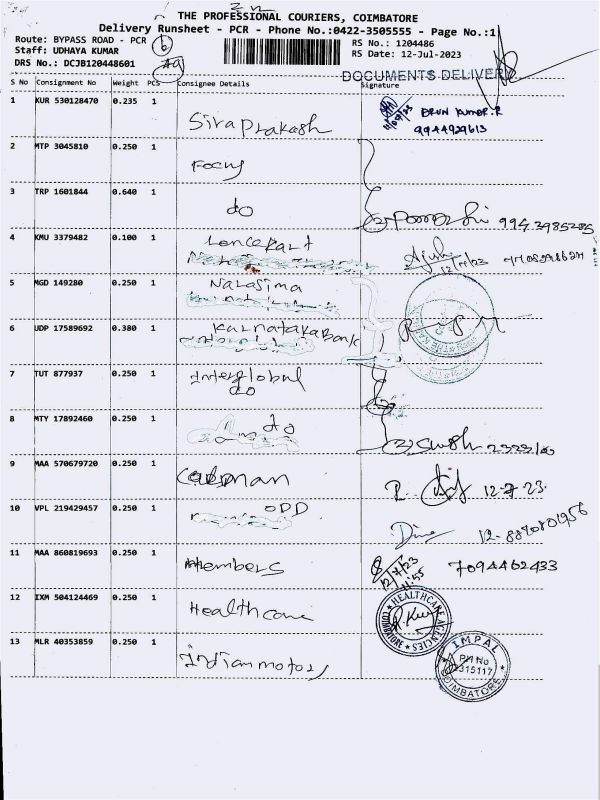 THE PROFESSIONAL COURIERS, COIMBATORE
Delivery Runsheet - PCR - Phone No.:0422-3505555 - Page No.:1
Route: BYPASS ROAD - PCR 6
RS No.: 1204486
Staff: UDHAYA KUMAR
RS Date: 12-Jul-2023
DRS No.: DCJB120448601
DOCUMENTS DELIVERY
S No Consignment No Weight PCS Consignee Details Signature
1 KUR 530128470 0.235 1 Siva Prakash
9944929613
2 MTP 3045810 0.250 1 Focus
3 TRP 1601844 0.640 1 do
4 KMU 3379482 0.100 1 Lencekart
12/7/23
5 MGD 149280 0.250 1 Narasima
6 UDP 17589692 0.380 1 Karnataka Bank
7 TUT 877937 0.250 1 Interglobal
do
8 MTY 17892460 0.250 1 do
9 MAA 570679720 0.250 1 12-7-23
10 VPL 219429457 0.250 1 OPP
11 MAA 860819693 0.250 1 Members 7094462433
12/7/23
11:55
12 IXM 504124469 0.250 1 Health care
HEALTHCARE AGENCIES
COIMBATORE
13 MLR 40353859 0.250 1 Indian motors
IMPAL
PH No
2315117
COIMBATORE